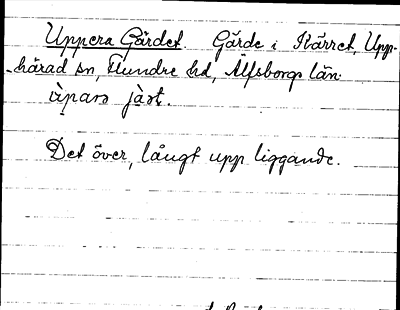 Uppera Gärdet. Gärde i Kärret, Upp-
härad sn, Flundre hd, Älfsborgs län
åpara jäst.
Det över, långt upp liggande.